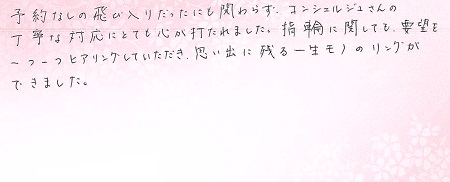 予約なしの飛び入りだったにも関わらず、コンシェルジュさんの
丁寧な対応にとても心が打たれました。指輪に関しても、要望を
一つ一つヒアリングしていただき、思い出に残る一生モノのリングが
できました。